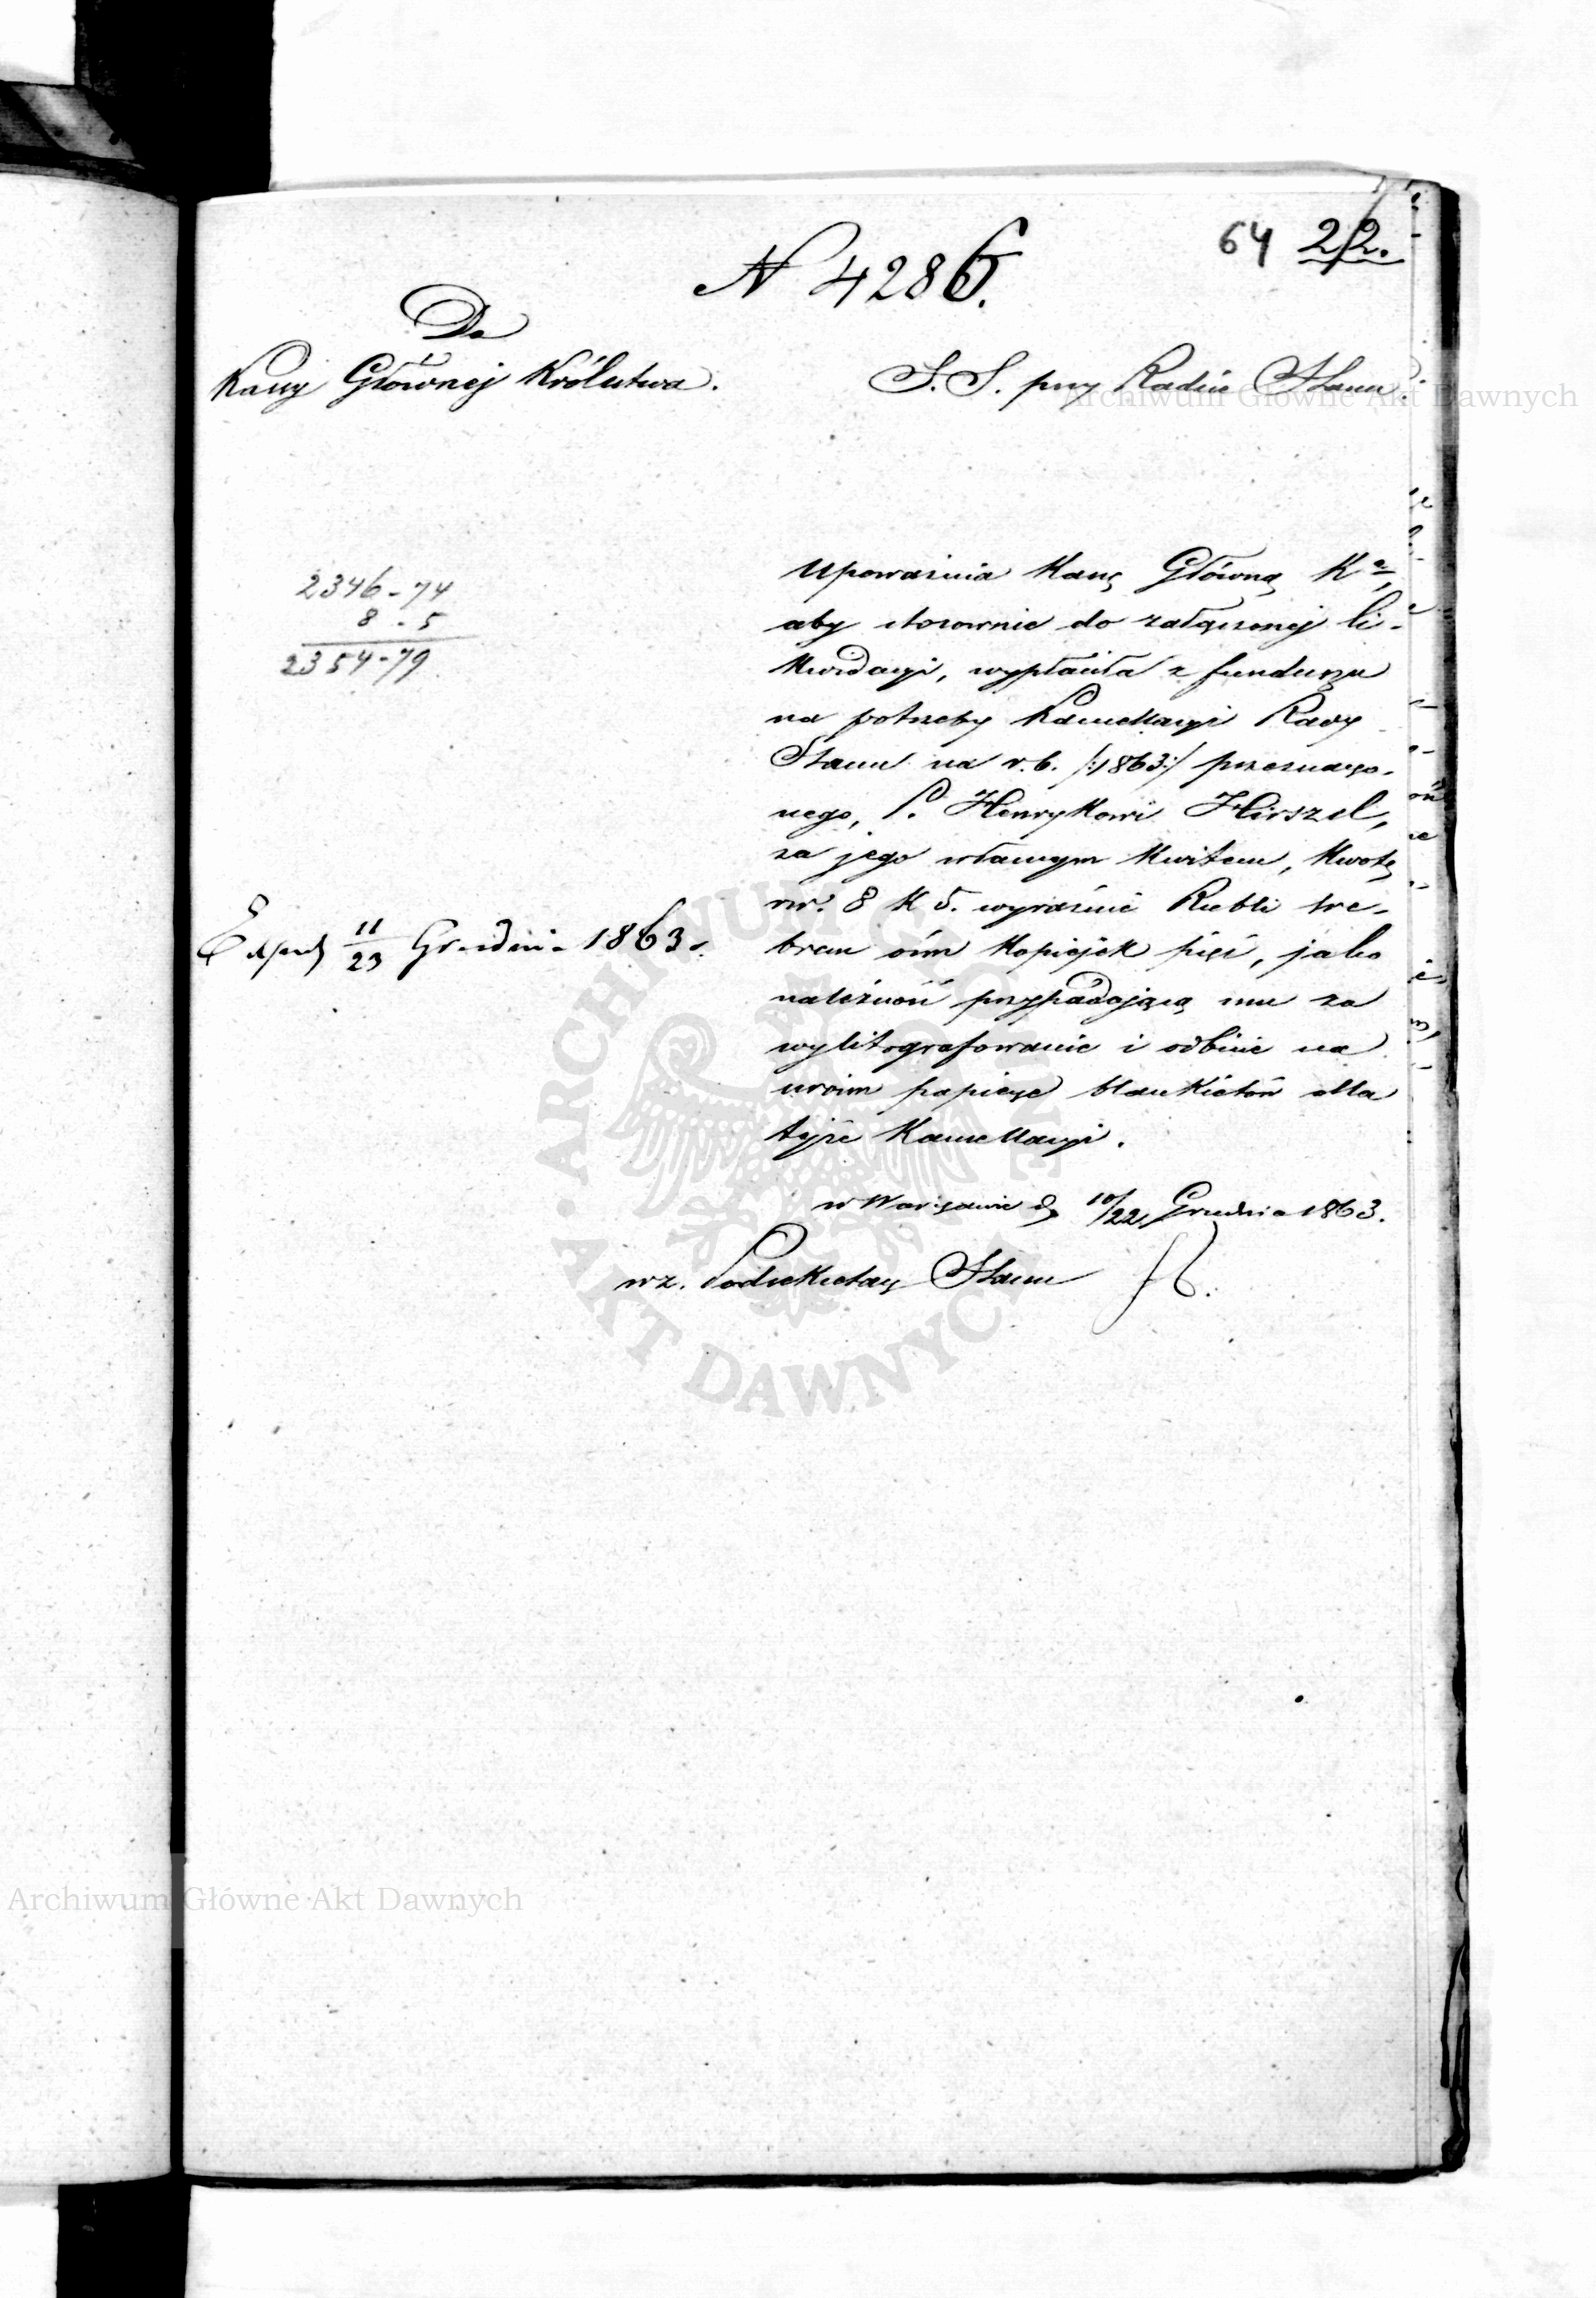 64 22.
N 4286.
Do
Kassy Głównej Królestwa.
S. S. przy Radzie Stanu
2346-74
8-5
2354-79
Upoważnia Kassę Główną K.
aby stosownie do załączonej li-
kwidacyi, wypłaciła z funduszu
na potrzeby Kancellaryi Rady
Stanu na r. b. /:1863:/ przeznaczo-
nego, P. Henrykowi Hirszel,
za jego własnym kwitem, kwotę
rsr. 8 k 5. wyraźnie Rubli sre-
brem ośm kopiejek pięć, jako
należność przypadającą mu za
wylitografowanie i odbicie na
swoim papierze blankietów dla
tejże Kancellaryi.
11/23 Grudnia 1863.
w Warszawie d. 10/22 Grudnia 1863.
wz. Podsekretarz Stanu
Archiwum Główne Akt Dawnych
ARCHIWUM GŁÓWNE
AKT DAWNYCH
Archiwum Główne Akt Dawnych